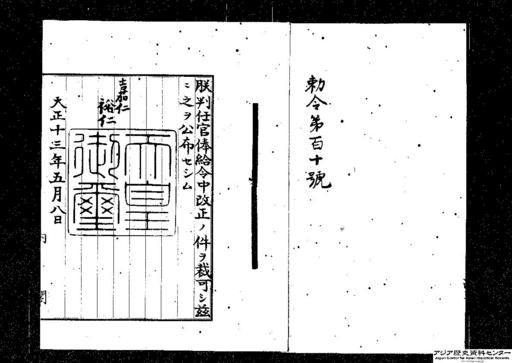 勅令第百十號
朕判任官俸給令中改正ノ件ヲ裁可シ茲
ニ之ヲ公布セシム
嘉仁
裕仁
天皇
御璽
大正十三年五月八日
内閣
アジア歴史資料センター
Japan Center for Asian Historical Records